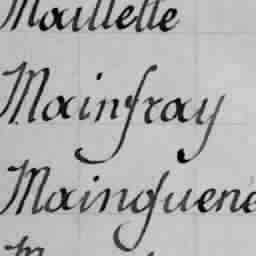 Maillette
Mainfray
Mainguené